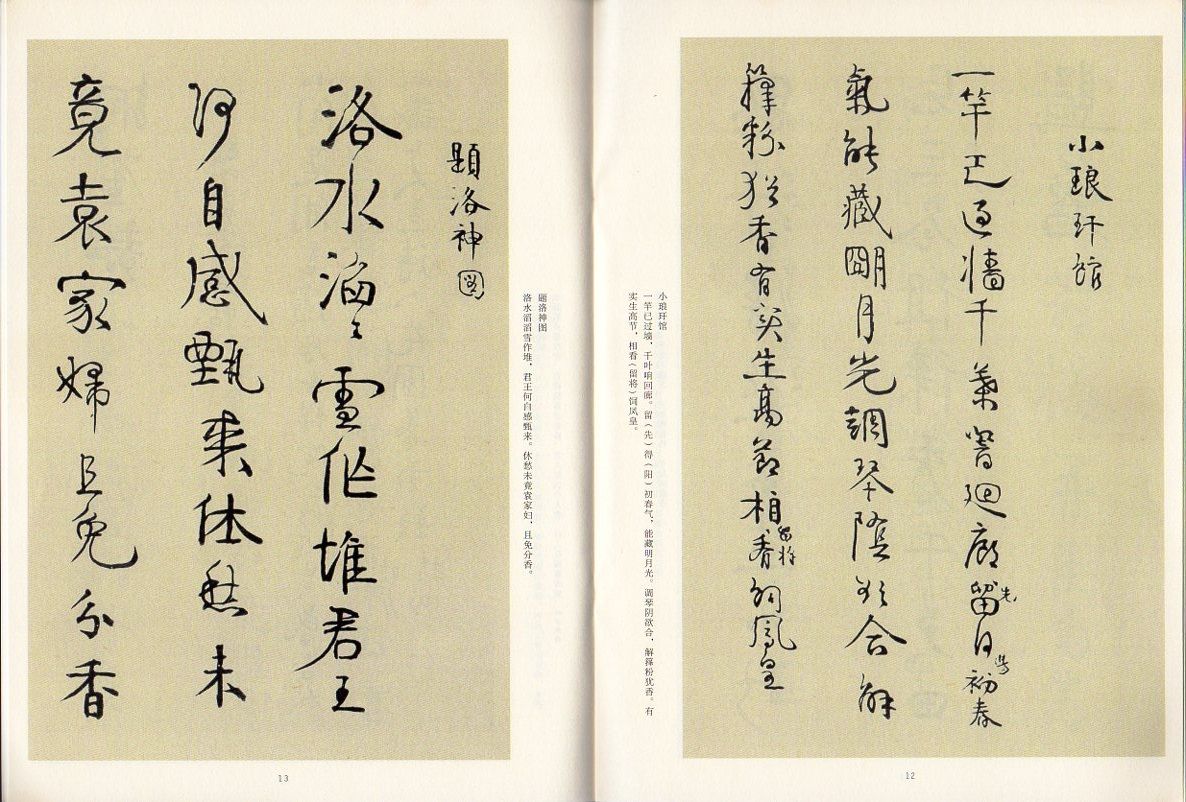 小琅玕館
一竿已過牆千葉響迴廊留得初春
先
氣能藏朙月光調琴陰欲合解
籜粉猶香有實生高節相看飼鳳皇
留將
小琅玕馆
一竿已过墙，千叶响回廊。留（先）得（阳）初春气，能藏明月光。调琴阴欲合，解箨粉犹香。有
实生高节，相看（留将）饲凤皇。
12
题洛神图
洛水滔滔雪作堆，君王何自感甄来。休愁未竟袁家妇，且免分香。
題洛神図
洛水滔〻雪作堆君王
何自感甄来休愁未
竟袁家婦且免分香
13